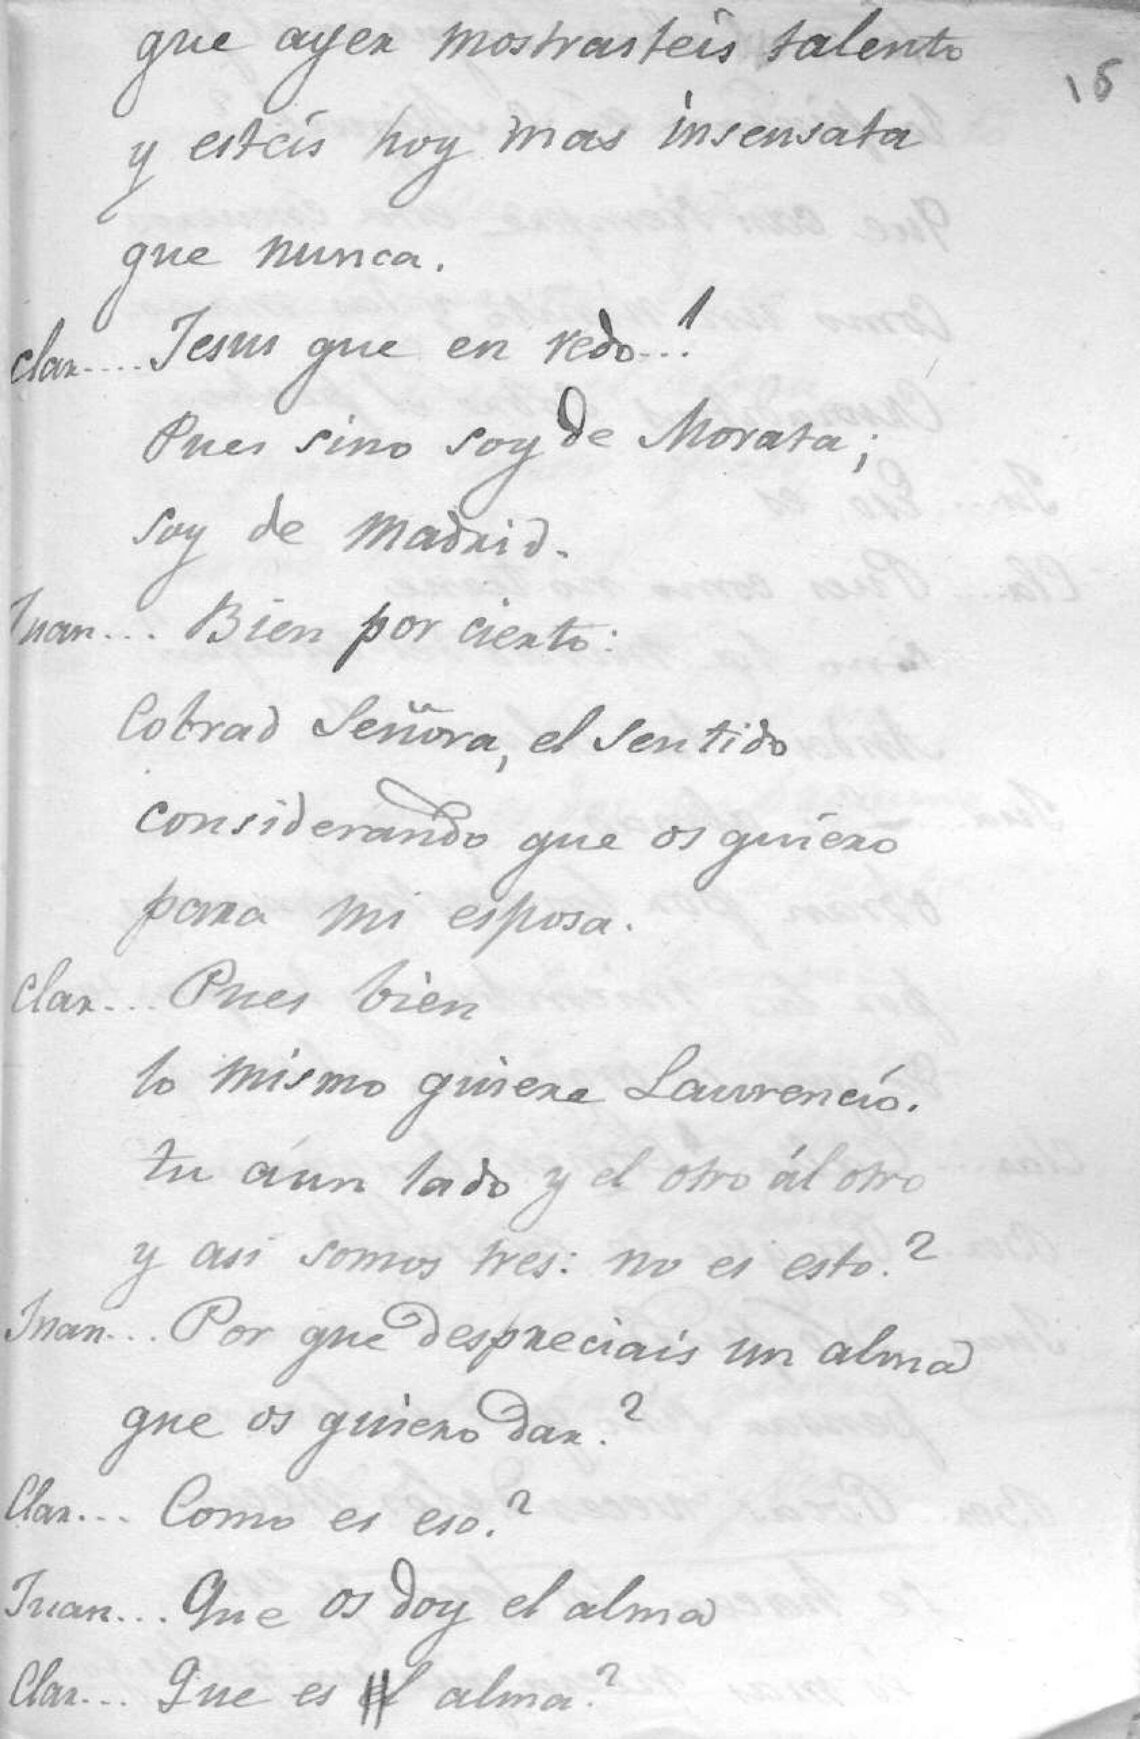 que ayer mostrasteis talento
15
y esteis hoy mas insensata
que nunca.
Clar.... Jesus que en redo...!
Pues sino soy de Morata;
soy de Madrid.
Juan... Bien por cierto:
Cobrad Señora, el sentido
considerando que os quiero
para mi esposa.
Clar... Pues bien
lo mismo quiere Laurencio.
tu áun lado y el otro ál otro
y asi somos tres: no es esto.?
Juan... Por que despreciais un alma
que os quiero dar.?
Clar... Como es eso.?
Juan... Que os doy el alma
Clar... Que es el alma.?